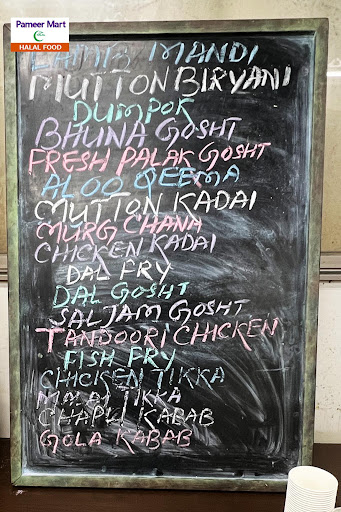 Pameer Mart
HALAL FOOD
LAMB MANDI
MUTTON BIRYANI
DUMPOK
BHUNA GOSHT
FRESH PALAK GOSHT
ALOO QEEMA
MUTTON KADAI
MURG CHANA
CHICKEN KADAI
DAL FRY
DAL GOSHT
SALJAM GOSHT
TANDOORI CHICKEN
FISH FRY
CHICKEN TIKKA
MALAI TIKKA
CHAPLI KABAB
GOLA KABAB